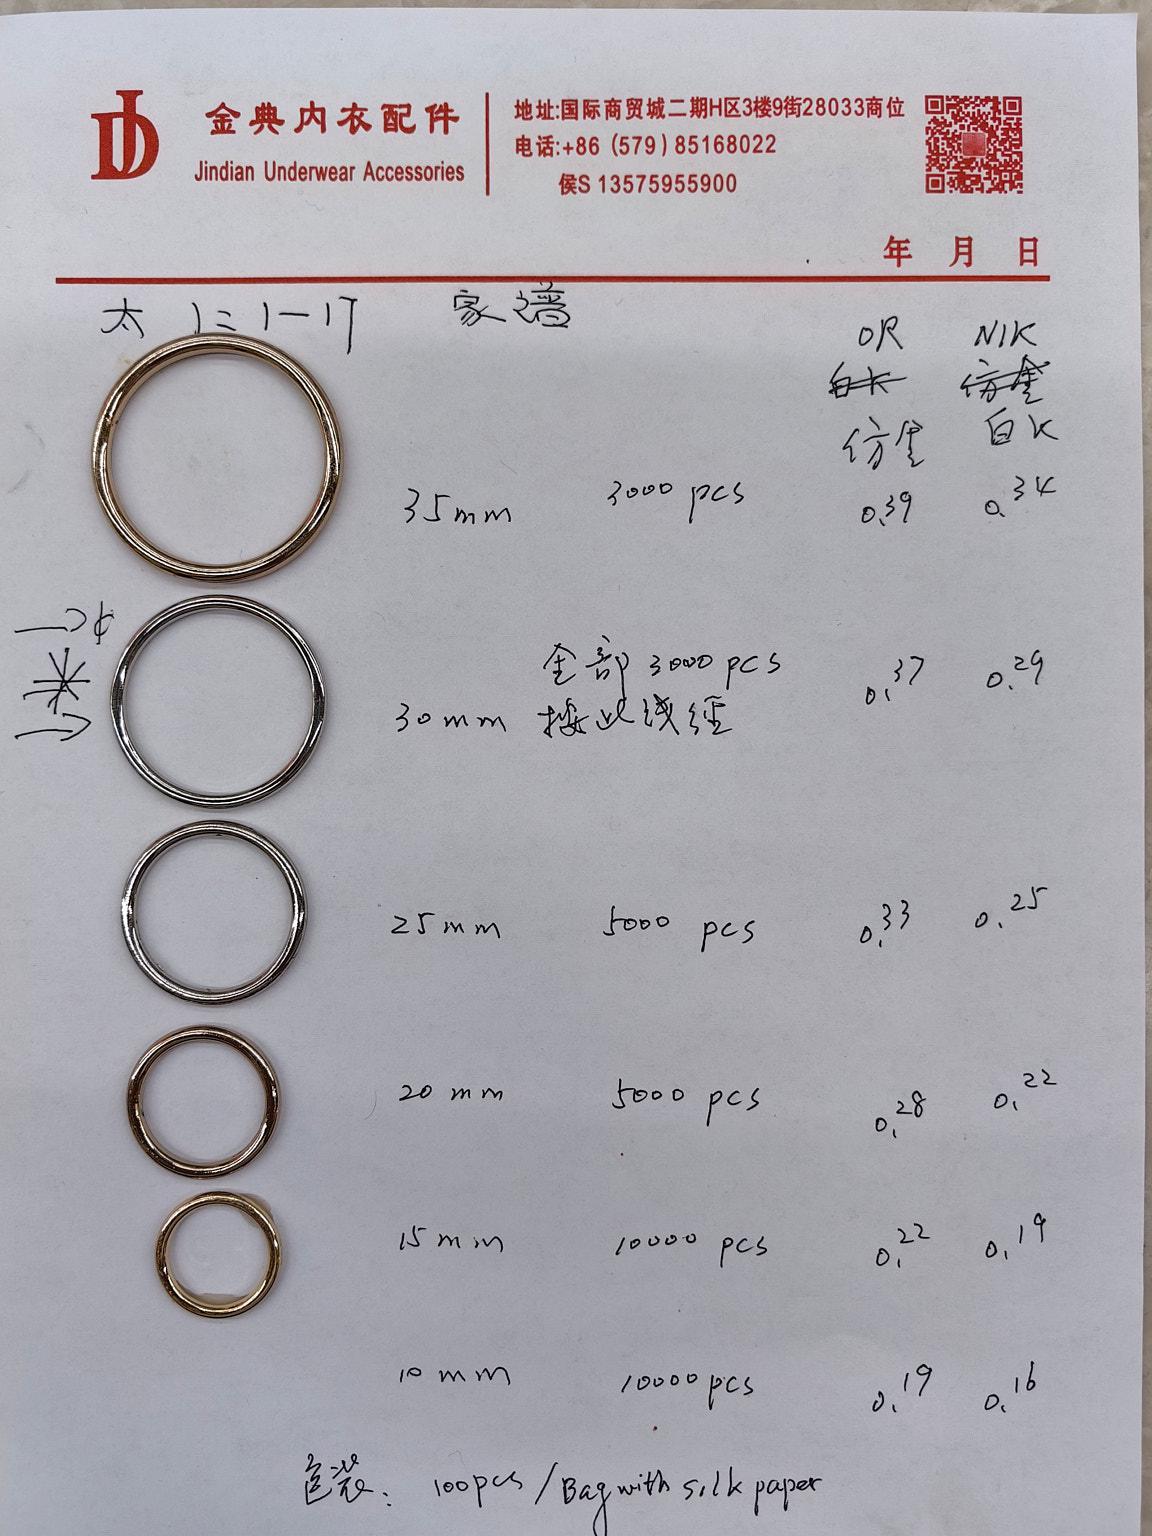 金典内衣配件
Jindian Underwear Accessories
地址:国际商贸城二期H区3楼9街28033商位
电话:+86 (579) 85168022
侯S 13575955900
年 月 日
家谱
OR NIK
白K 仿金
仿金 白K
35mm 3000 pcs 0.39 0.34
全部 3000 pcs 0.37 0.29
30mm 按此线径
25mm 5000 pcs 0.33 0.25
20mm 5000 pcs 0.28 0.22
15mm 10000 pcs 0.22 0.19
10mm 10000 pcs 0.19 0.16
包装: 100pcs/Bag with silk paper